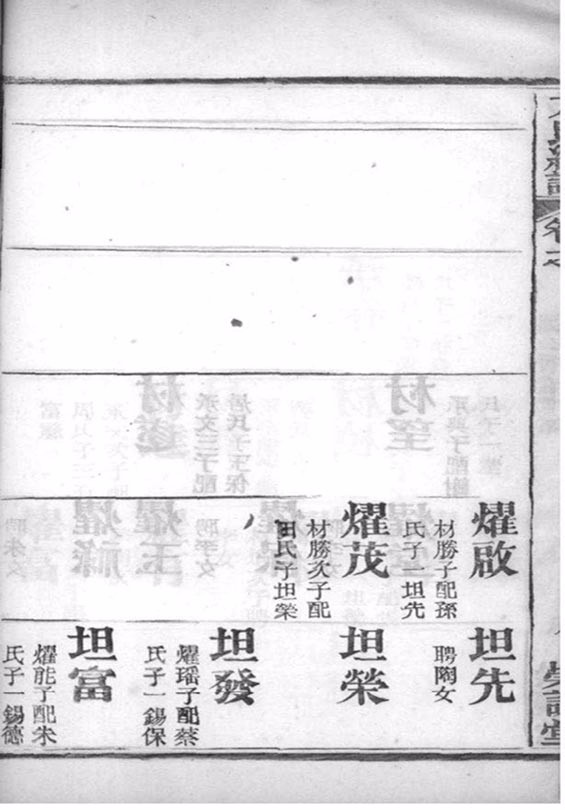 卷七
耀啟
材勝子配孫
氏子一坦先
耀茂
材勝次子配
田氏子坦榮
坦先
聘陶女
坦榮
坦發
耀瑶子配蔡
氏子一錫保
坦富
耀能子配朱
氏子一錫德